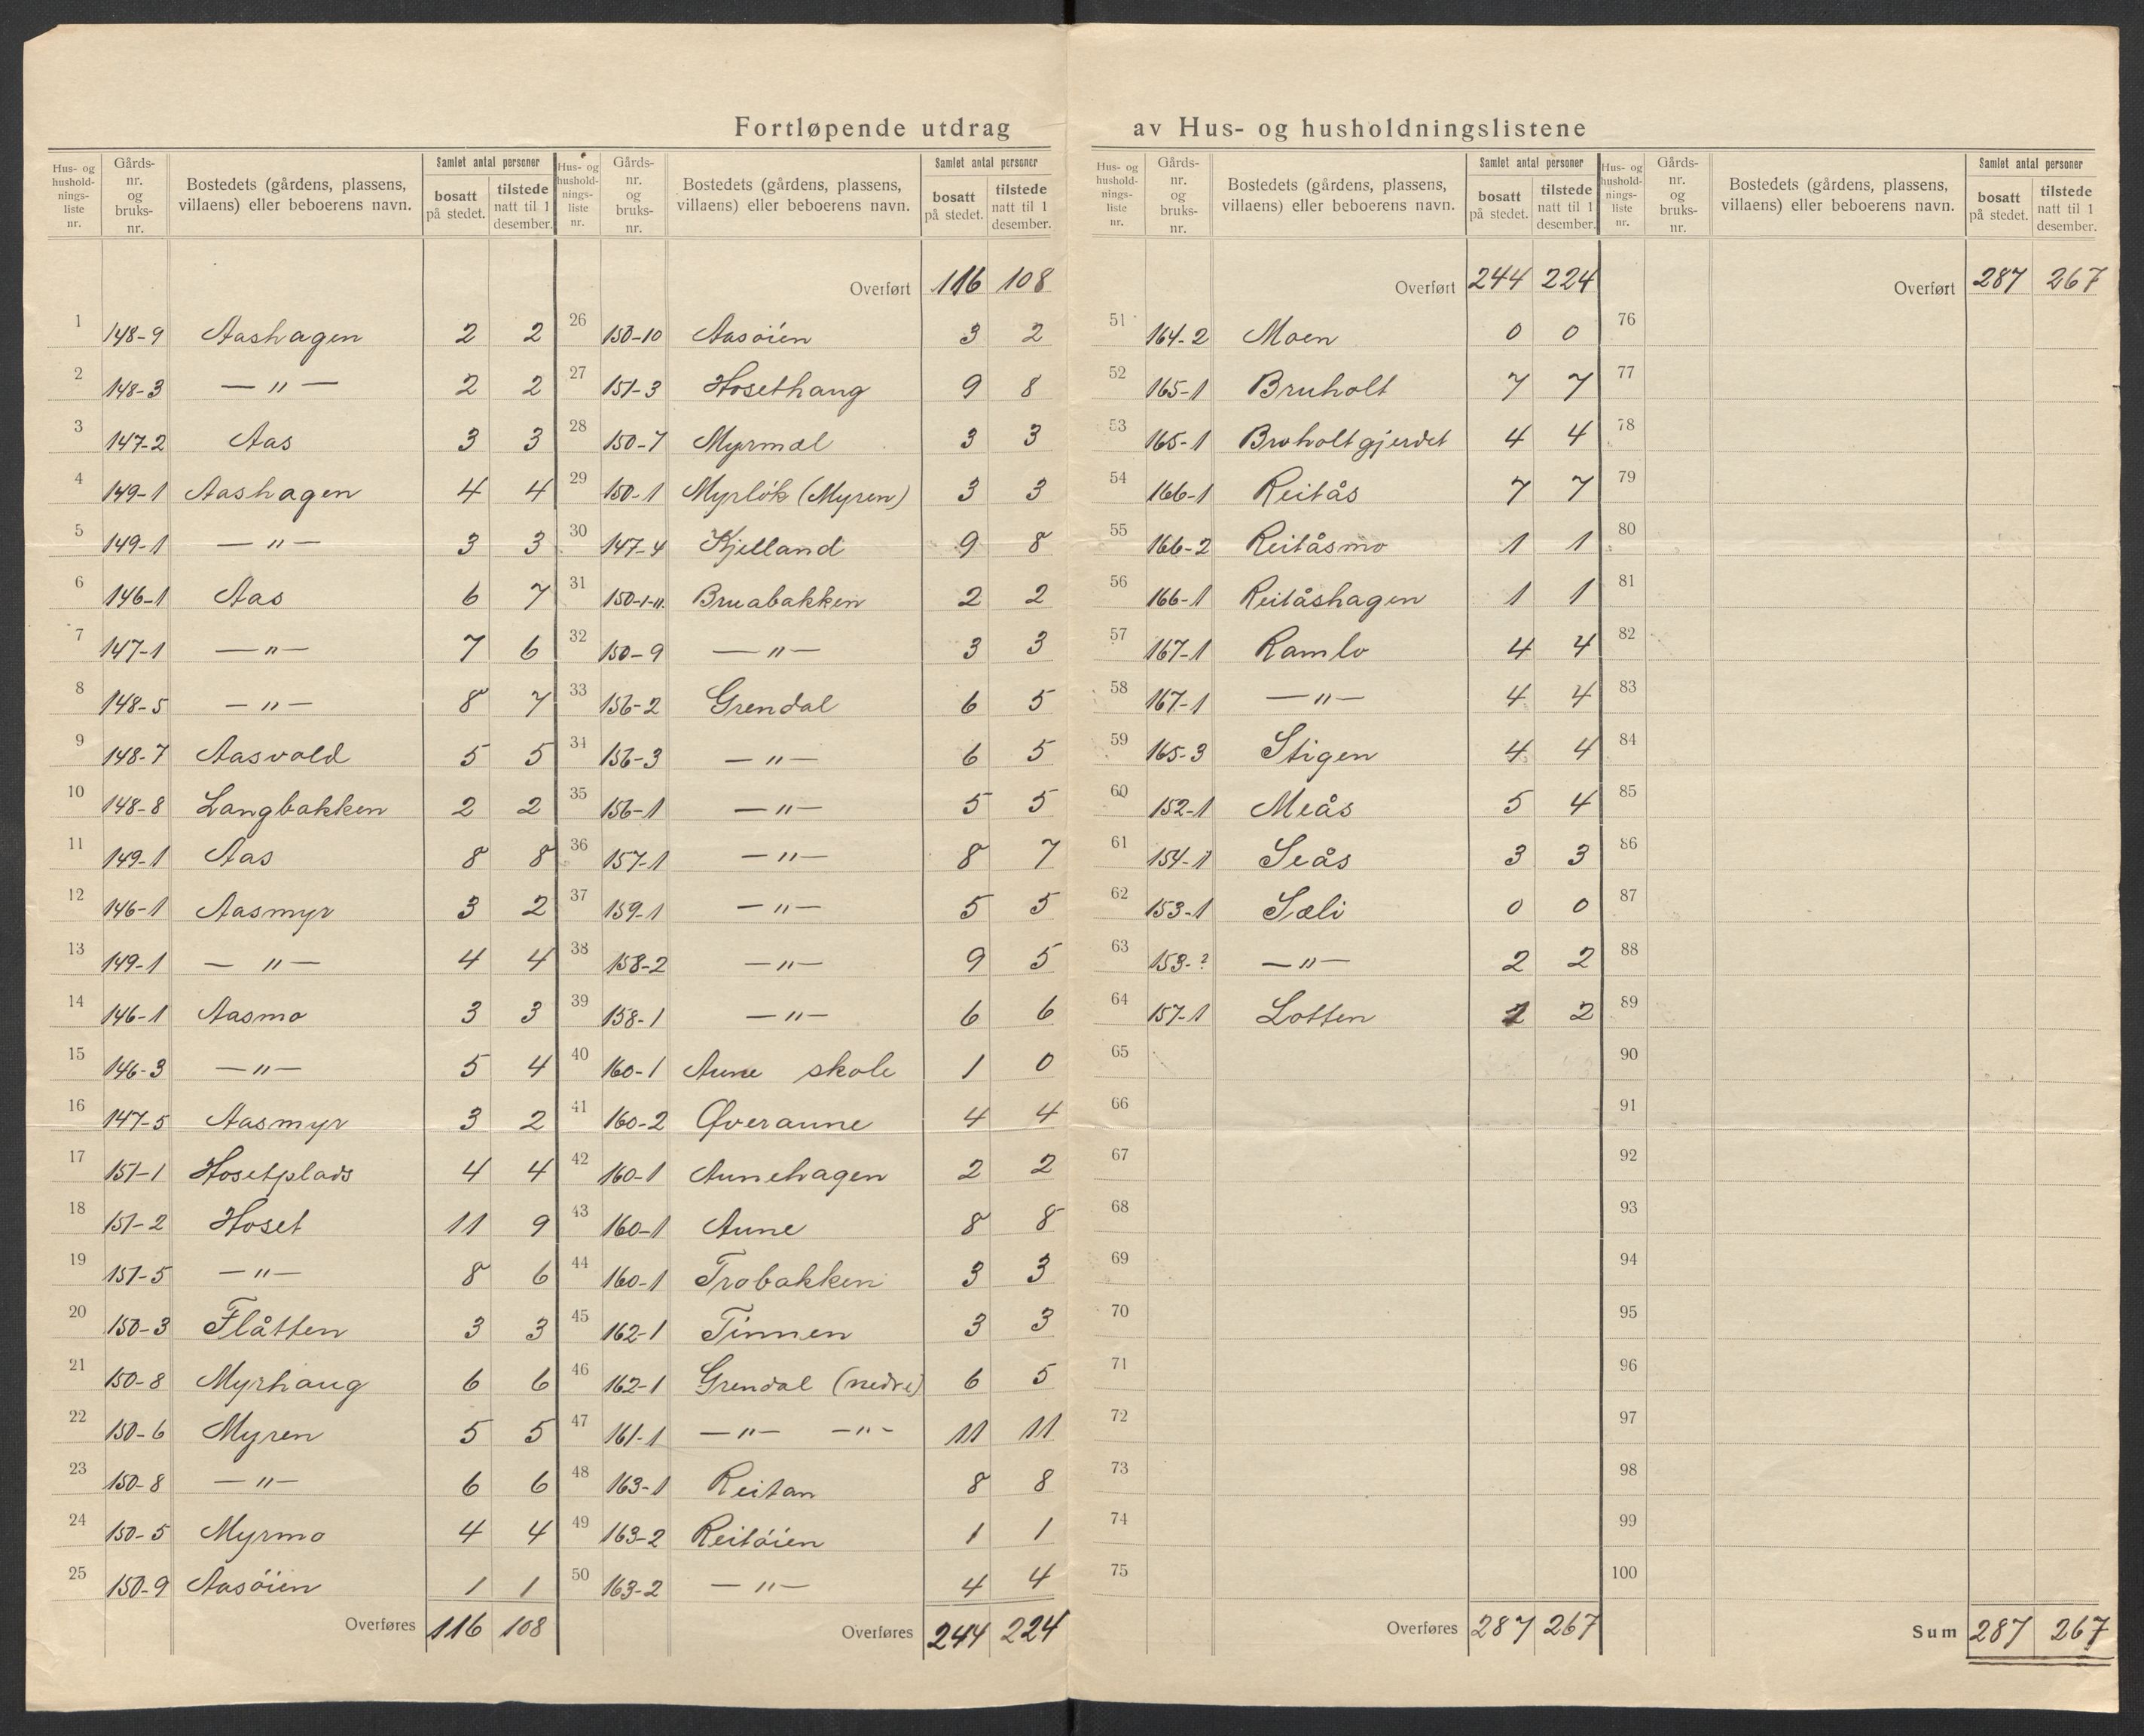 Fortløpende utdrag av Hus- og husholdningslistene
Hus- og hushold-nings-liste nr. | Gårds-nr. og bruks-nr. | Bostedets (gårdens, plassens, villaens) eller beboerens navn. | Samlet antal personer | bosatt på stedet. | tilstede natt til 1 desember.
1 148-9 Aashagen 2 2
2 148-3 —"— 2 2
3 147-2 Aas 3 3
4 149-1 Aashagen 4 4
5 149-1 —"— 3 3
6 146-1 Aas 6 7
7 147-1 —"— 7 6
8 148-5 —"— 8 7
9 148-7 Aasvold 5 5
10 148-8 Langbakken 2 2
11 149-1 Aas 8 8
12 146-1 Aasmyr 3 2
13 149-1 —"— 4 4
14 146-1 Aasmo 3 3
15 146-3 —"— 5 4
16 147-5 Aasmyr 3 2
17 151-1 Hosetplads 4 4
18 151-2 Hoset 11 9
19 151-5 —"— 8 6
20 150-3 Flåtten 3 3
21 150-8 Myrhaug 6 6
22 150-6 Myren 5 5
23 150-8 —"— 6 6
24 150-5 Myrmo 4 4
25 150-9 Aasöien 1 1
Overføres 116 108
Hus- og hushold-nings-liste nr. | Gårds-nr. og bruks-nr. | Bostedets (gårdens, plassens, villaens) eller beboerens navn. | Samlet antal personer | bosatt på stedet. | tilstede natt til 1 desember.
Overført 116 108
26 150-10 Aasöien 3 2
27 151-3 Hosethaug 9 8
28 150-7 Myrmæl 3 3
29 150-1 Myrlök (Myren) 3 3
30 147-4 Kjelland 9 8
31 150-1-11. Bruabakken 2 2
32 150-9 —"— 3 3
33 156-2 Grendal 6 5
34 156-3 —"— 6 5
35 156-1 —"— 5 5
36 157-1 —"— 8 7
37 159-1 —"— 5 5
38 158-2 —"— 9 5
39 158-1 —"— 6 6
40 160-1 Aune skole 1 0
41 160-2 Øveraune 4 4
42 160-1 Aunehagen 2 2
43 160-1 Aune 8 8
44 160-1 Trobakken 3 3
45 162-1 Tinnen 3 3
46 162-1 Grendal (nedre) 6 5
47 161-1 —"— —"— 11 11
48 163-1 Reitan 8 8
49 163-2 Reitöien 1 1
50 163-2 —"— 4 4
Overføres 244 224
Hus- og hushold-nings-liste nr. | Gårds-nr. og bruks-nr. | Bostedets (gårdens, plassens, villaens) eller beboerens navn. | Samlet antal personer | bosatt på stedet. | tilstede natt til 1 desember.
Overført 244 224
51 164-2 Moen 0 0
52 165-1 Bruholt 7 7
53 165-1 Broholtgjerdet 4 4
54 166-1 Reitås 7 7
55 166-2 Reitåsmo 1 1
56 166-1 Reitåshagen 1 1
57 167-1 Ramlo 4 4
58 167-1 —"— 4 4
59 165-3 Stigen 4 4
60 152-1 Meås 5 4
61 154-1 Seås 3 3
62 153-1 Sæli 0 0
63 153-? —"— 2 2
64 157-1 Lotten 2 2
65
66
67
68
69
70
71
72
73
74
75
Overføres 287 267
Hus- og hushold-nings-liste nr. | Gårds-nr. og bruks-nr. | Bostedets (gårdens, plassens, villaens) eller beboerens navn. | Samlet antal personer | bosatt på stedet. | tilstede natt til 1 desember.
Overført 287 267
76
77
78
79
80
81
82
83
84
85
86
87
88
89
90
91
92
93
94
95
96
97
98
99
100
Sum 287 267